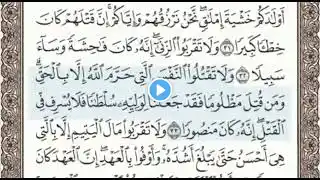 أَوْلَٰدَكُمْ خَشْيَةَ إِمْلَٰقٍ ۖ نَّحْنُ نَرْزُقُهُمْ وَإِيَّاكُمْ ۚ إِنَّ قَتْلَهُمْ كَانَ
خِطْـًٔا كَبِيرًا ٣١ وَلَا تَقْرَبُوا۟ ٱلزِّنَىٰٓ ۖ إِنَّهُۥ كَانَ فَٰحِشَةً وَسَآءَ
سَبِيلًا ٣٢ وَلَا تَقْتُلُوا۟ ٱلنَّفْسَ ٱلَّتِى حَرَّمَ ٱللَّهُ إِلَّا بِٱلْحَقِّ ۗ
وَمَن قُتِلَ مَظْلُومًا فَقَدْ جَعَلْنَا لِوَلِيِّهِۦ سُلْطَٰنًا فَلَا يُسْرِف فِّى
ٱلْقَتْلِ ۖ إِنَّهُۥ كَانَ مَنصُورًا ٣٣ وَلَا تَقْرَبُوا۟ مَالَ ٱلْيَتِيمِ إِلَّا بِٱلَّتِى
هِىَ أَحْسَنُ حَتَّىٰ يَبْلُغَ أَشُدَّهُۥ ۚ وَأَوْفُوا۟ بِٱلْعَهْدِ ۖ إِنَّ ٱلْعَهْدَ كَانَ